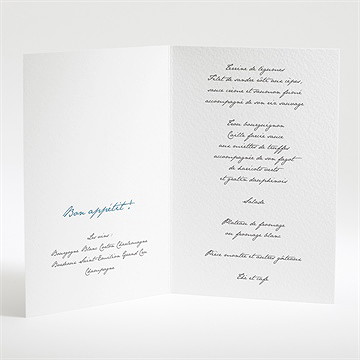 Bon appétit !
Les vins :
Bourgogne Blanc Corton Charlemagne
Bordeaux Saint-Emilion Grand Cru
Champagne
Terrine de légumes
Filet de sandre rôti aux cèpes,
sauce crème et saumon fumé
accompagné de son riz sauvage
Trou bourguignon
Caille farcie sauce
aux miettes de truffes
accompagnée de son fagot
de haricots verts
et gratin dauphinois
Salade
Plateau de fromage
ou fromage blanc
Pièce montée et autres gâteaux
Thé et café